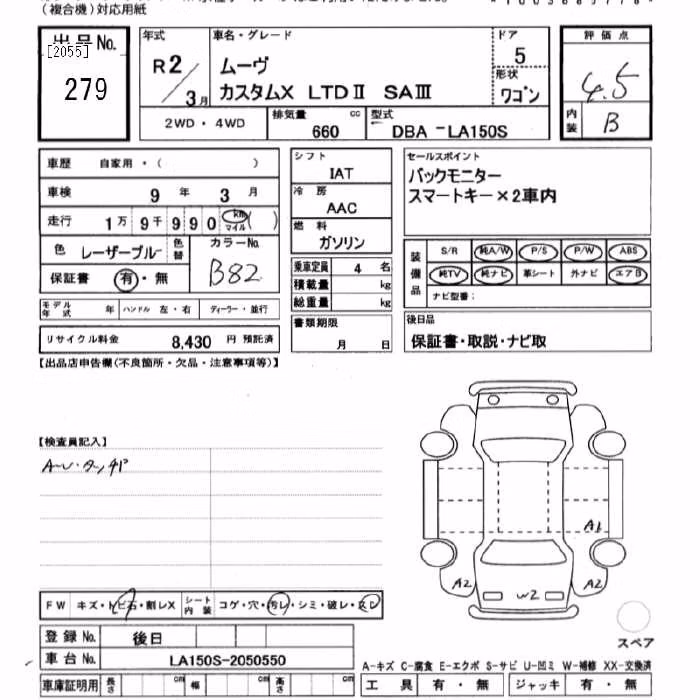 (複合機)対応用紙
出品No.
[2055]
279
年式
R2/3月
車名・グレード
ムーヴ
カスタムX LTDⅡ SAⅢ
ドア
5
形状
ワゴン
評価点
4.5
内装
B
2WD・4WD
排気量
660
cc
型式
DBA-LA150S
車歴 自家用・( )
車検 9年 3月
走行 1万9千990 km マイル ( )
色 レーザーブルー 色替
カラーNo.
B82
保証書 有・無
モデル年式 年 ハンドル 左・右 ディーラー・並行
リサイクル料金 8,430 円 預託済
シフト
IAT
冷房
AAC
燃料
ガソリン
乗車定員 4 名
積載量 kg
総重量 kg
書類期限
月 日
セールスポイント
バックモニター
スマートキー×2車内
装備品
S/R 純A/W P/S P/W ABS
純TV 純ナビ 革シート 外ナビ エアB
ナビ型番:
後日品
保証書・取説・ナビ取
【出品店申告欄(不良箇所・欠品・注意事項等)】
【検査員記入】
A1
A2
A2
W2
スペア
FW キズ・トビ石・割レX シート内装 コゲ・穴・汚レ・シミ・破レ・スレ
登録No. 後日
車台No. LA150S-2050550
車庫証明用 長さ cm 幅 cm 高さ cm
A-キズ C-腐食 E-エクボ S-サビ U-凹ミ W-補修 XX-交換済
工具 有・無 ジャッキ 有・無